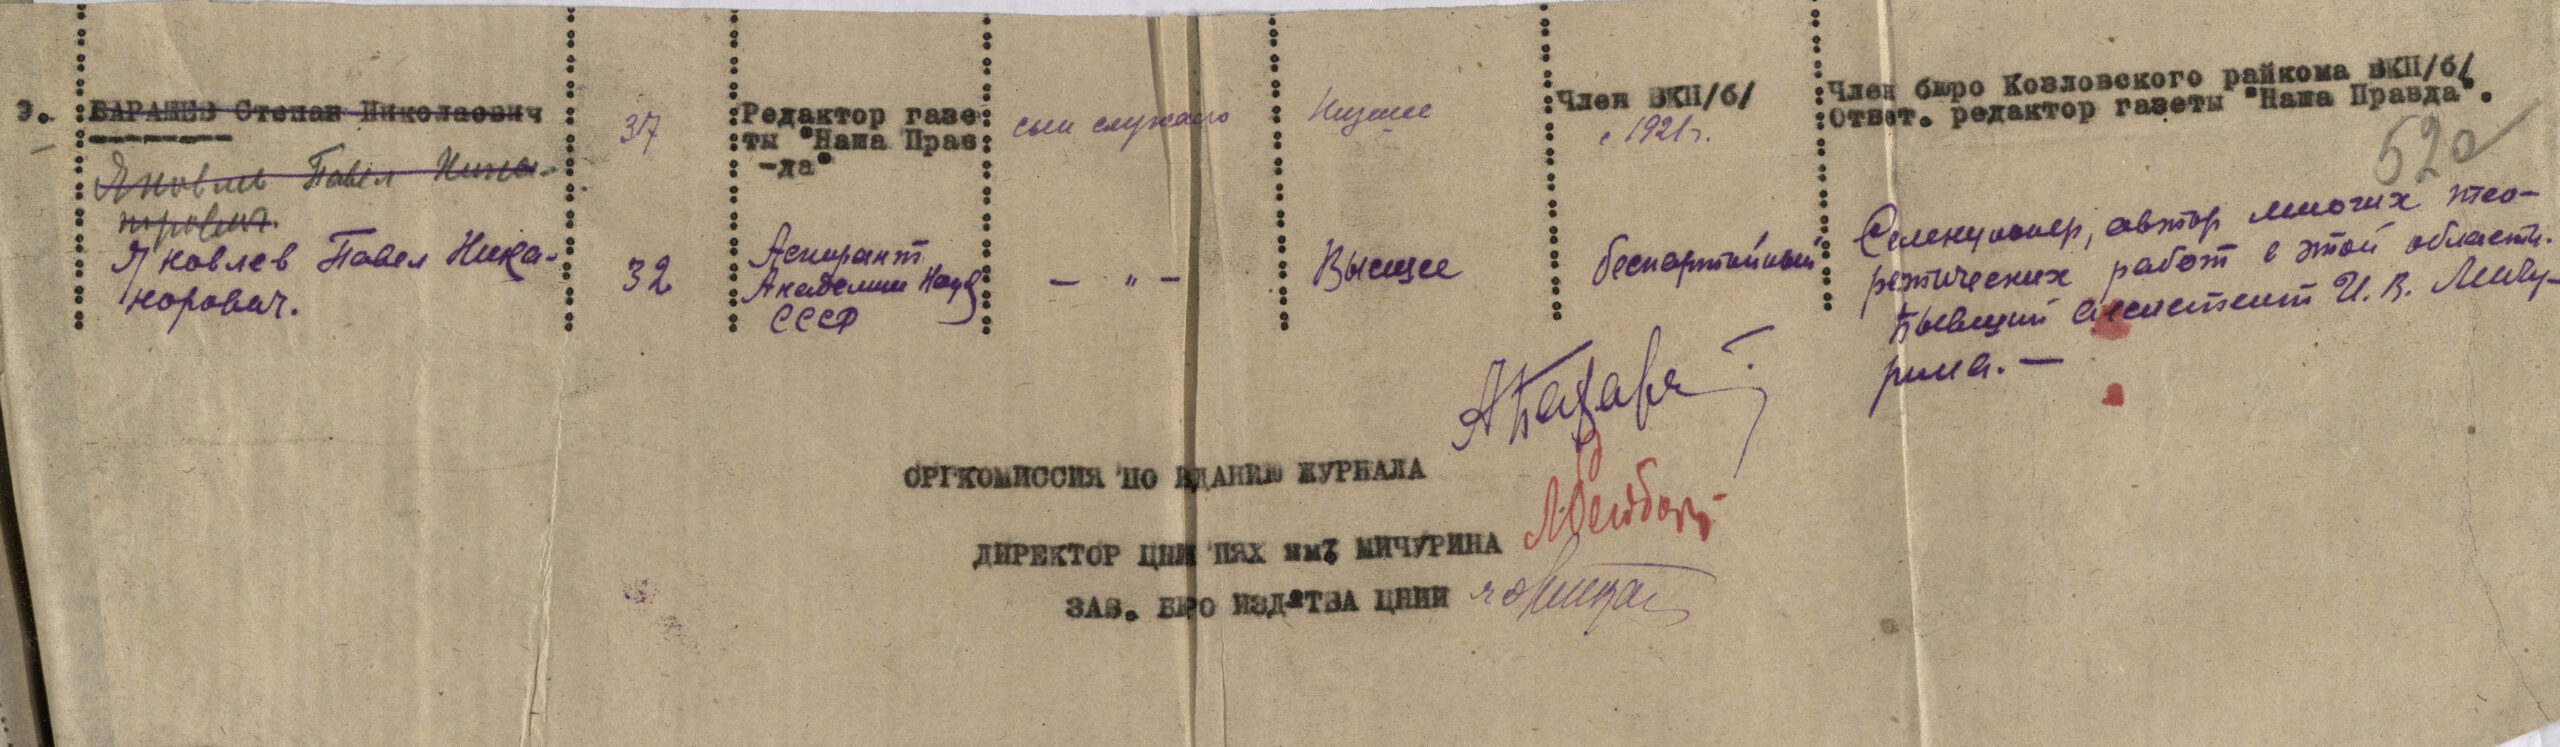 9. БАРАШЕВ Степан Николаевич
37
Редактор газе-
ты "Наша Прав
-да"
сын служащ
Низшее
Член ВКП/б/
с 1921 г.
Член бюро Козловского райкома ВКП/б/
Ответ. редактор газеты "Наша Правда".
52
Яковлев Павел Ника-
норович.
Яковлев Павел Ника-
норович.
32
Аспирант
Академии Наук
СССР
— " —
Высшее
беспартийный
Селекционер, автор многих тео-
ретических работ в этой области.
Бывший ассистент И. В. Мичу-
рина. —
ОРГКОМИССИЯ ПО ИЗДАНИЮ ЖУРНАЛА
ДИРЕКТОР ЦНИИ ПЯХ им. МИЧУРИНА
ЗАВ. БЮРО ИЗД-ТВА ЦНИИ